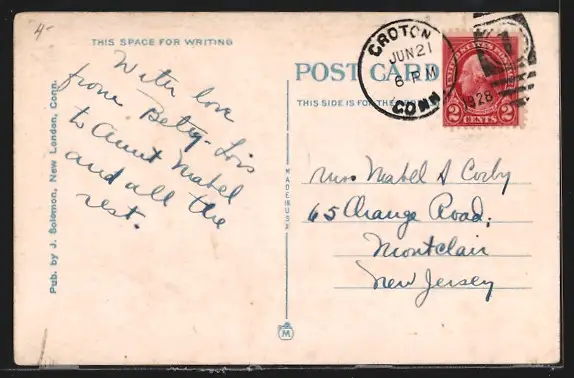 4-
THIS SPACE FOR WRITING
With love
from Betty-Lois
to Aunt Mabel
and all the
rest.
Pub. by J. Solomon, New London, Conn.
MADE IN U.S.A.
M
POST CARD
THIS SIDE IS FOR THE
CROTON
JUN 21
6 PM
1928
CONN
UNITED STATES POSTAGE
2 CENTS 2
Miss Mabel S Corby
65 Change Road;
Montclair
New Jersey